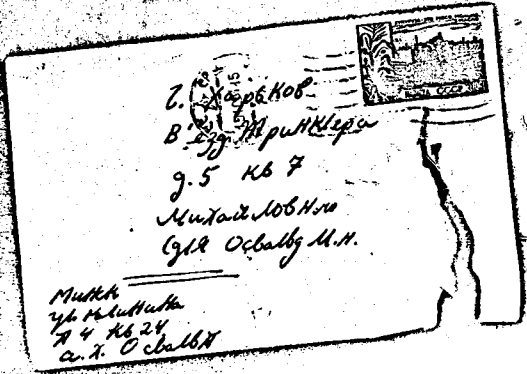 г. Харьков
В'езд Тринклера
д. 5 кв 7
Михайловкю
(для Освальд М.Н.
Минск
ул. Калинина
д 4 кв 24
а. х. Освальд